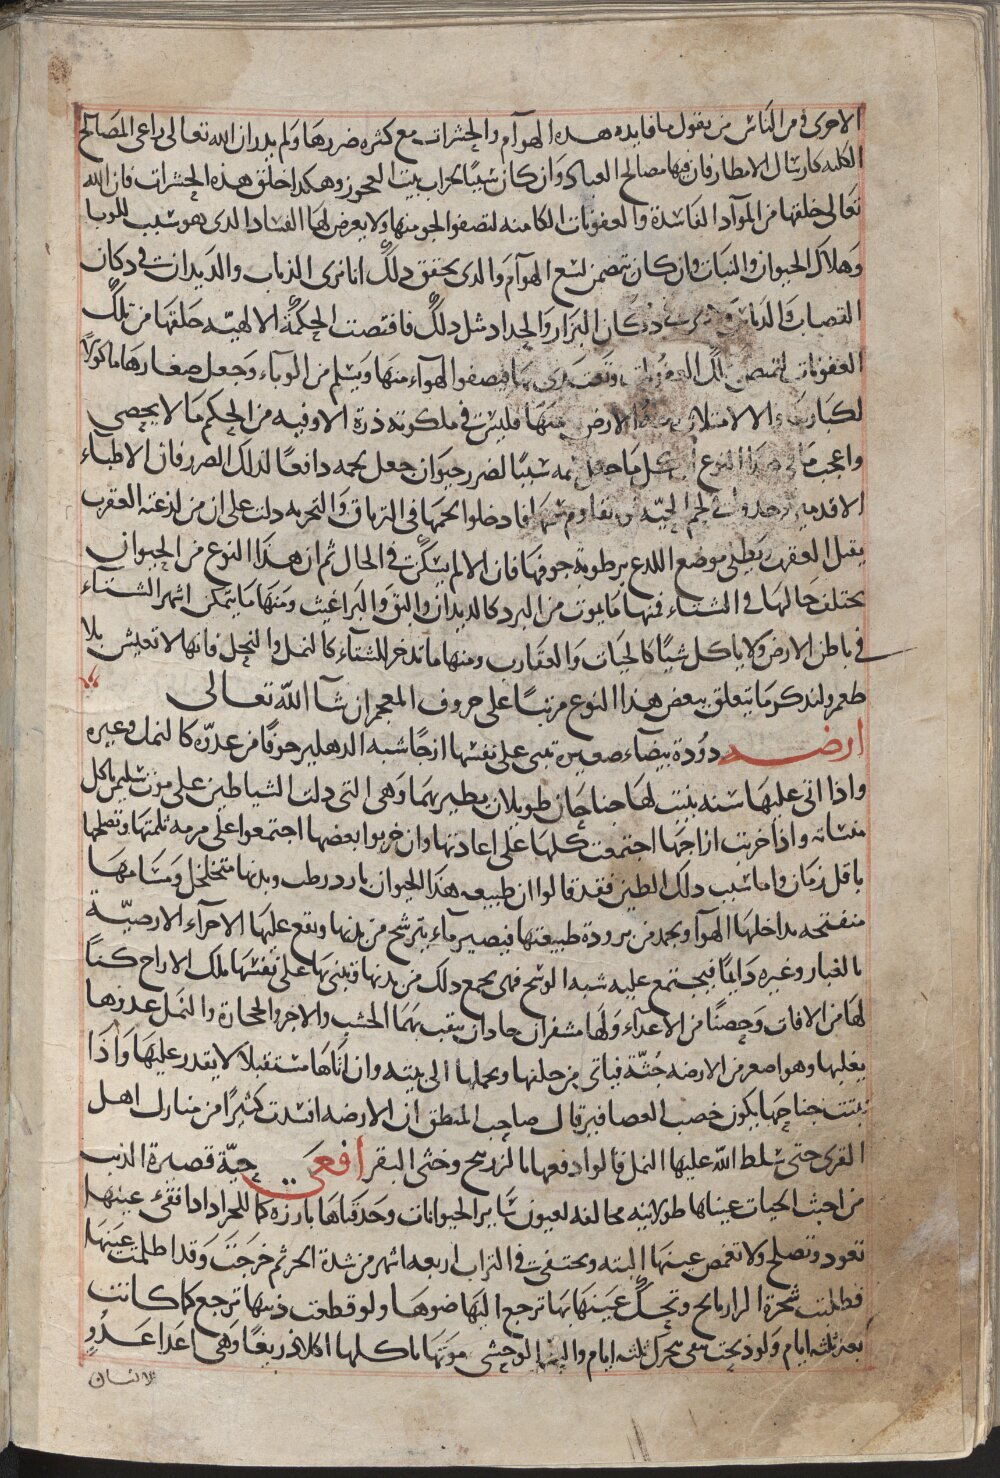 الاحرى فمن الناس من يقول ما فايده هذه الهوآم والحشرات مع كثره ضررها ولم يدر ان الله تعالى يراعى المصالح
الكليه كارسال الامطار فان فيها مصالح العباد وان كان شيئا بخراب بيت العجوز وهكذا خلق هذه الحشرات فان الله
تعالى خلقها من الموآد الفاسدة والعفونات الكامنه لتصفوا الجو منها ولا يعرض لها الفساد الدى هو سبب للوبا
وهلاك الحيوان والنبات وان كان تتضمن لسع الهوآم والدى يحقق دلك انا نرى الذباب والديدان فى دكان
القصاب والدباس ولا نرى فى دكان البزار والحداد مثل دلك فاقتضت الحكمة الالهيه خلقها من تلك
العفونات لتمتص تلك العفونات فيصفوا الهوآء منها ويسلم من الوباء وجعل صغارها ماكولا
لكبارها والا لامتلاء وجه الارض منها فليس فى ملكوته ذرة الا وفيه من الحكم ما لا يحصى
واعجب ما فى هذا النوع ان كل ما جعل سمه سببا لضرر حيوان جعل لحمه دافعا لدلك الضرر فان الاطباء
الاقدمين وجدوا فى لحم الحيه ما يقاوم سمها فادخلوا لحمها فى الترياق والتجربه دلت على ان من لدغته العقرب
يقتل العقرب ويطلى موضع اللدع برطوبة جوفها فان الالم يسكن فى الحال ثم ان هذا النوع من الحيوان
يختلف حالها فى الشتاء فمنها ما يموت من البرد كالديدان والبق والبراغيث ومنها ما يتمكن اشهر الشتاء
فى باطن الارض ولا ياكل شيا كالحيات والعقارب ومنها ما تدخر للشتآء كالنمل والنحل فانها لا تعيش بلا
طعم ولندكر ما يتعلق ببعض هذا النوع مرتبا على حروف المعجم ان شآ الله تعالى
ارضه دودة بيضآء صغيره تبنى على نفسها ازجا شبه الدهليز خوفا من عدوه كالنمل وغيره
واذا اتى عليها سنه ينبت لها جناحان طويلان يطير بهما وهى التى دلت الشياطين على موت سليمن باكل
منساته واذا خربت ازاجها اجتمعت كلها على اعادتها وان خربوا بعضها اجتمعوا على مرمه ثلمتها وتصلحها
باقل زمان واما سبب دلك الطين فقد قالوا ان طبيعه هذا الحيوان بارد رطب وبدنها متخلخل ومسامها
منفتحه يداخلها الهوآ ويجمد من برودة طبيعتها فيصير مآء يترشح من بدنها ويقع عليها الاجزآء الارضيّة
بالغبار وغيره دايما فيجتمع عليه شبه الوسخ فهى يجمع دلك من بدنها وتبنى بها على نفسها ملك الازاج كنا
لها من الافات وحصنا من الاعدآء ولها مشفران حادان يثقب بهما الخشب والاجر والحجارة والنمل عدوها
يغلبها وهو اصغر من الارضه جثّة فياتى من خلفها ويحملها الى بيته وان اتاها مستقبلا لا يقدر عليها واذا
نبتت جناحها يكون خصب العصافير قال صاحب المنطق ان الارضه افسدت كثيرا من منازل اهل
القرى حتى سلط الله عليها النمل قالوا دفعها بالزرنيخ وخثى البقر افعى حيّة قصيرة الذنب
من اخبث الحيات عيناها طولانيه مخالفه لعيون سآير الحيوانات وحدقتاها بارزه كما للجراد اذا فقئ عينها
تعود وتصلح ولا تغمض عينها البته ويختفى فى التراب اربعه اشهر من شدة الحر ثم خرجت وقد اظلمت عينها
فطلبت شجرة الرازيانج وتحك عينها بها ترجع اليها ضوها ولو قطعت ذنبها ترجع كما كانت
بعد ثلثه ايام ولو ذبحت تبقى يتحرك ثلثه ايام والبقر الوحشى ياكلها اكلا ذريعا وهى اعدا عدو
للانسان